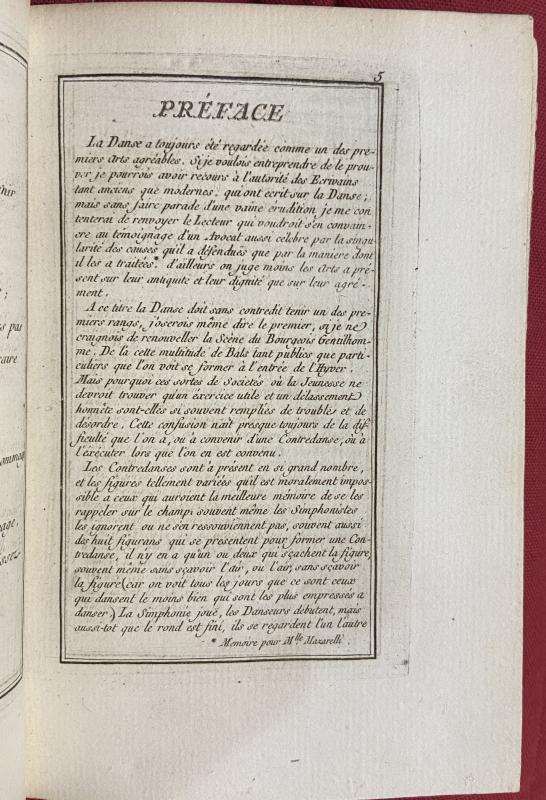 5
PRÉFACE
La Danse a toujours été regardée comme un des pre-
miers Arts agréables. Si je voulois entreprendre de le prou-
ver je pourrois avoir recours à l'autorité des Ecrivains
tant anciens que modernes, qui ont ecrit sur la Danse;
mais sans faire parade d'une vaine érudition je me con
tenterai de renvoyer le Lecteur qui voudroit s'en convain-
cre au témoignage d'un Avocat aussi célebre par la singu
larité des causes qu'il a défendües que par la maniere dont
il les a traitées*. d'ailleurs on juge moins les Arts a pré-
sent sur leur antiquité et leur dignité que sur leur agré-
ment.
A ce titre la Danse doit sans contredit tenir un des pre-
miers rangs, j'oserois même dire le premier, si je ne
craignois de renouveller la Scêne du Bourgeois Gentilhom-
me. De là cette multitude de Bals tant publics que parti-
culiers que l'on voit se former à l'entrée de l'Hyver.
Mais pourquoi ces sortes de Societés où la Jeunesse ne
devroit trouver qu'un éxercice utile et un délassement
honnête sont-elles si souvent remplies de troubles et de
désordre. Cette confusion nait presque toujours de la dif
ficulté que l'on à, ou à convenir d'une Contredanse, ou à
l'éxécuter lors que l'on en est convenu.
Les Contredanses sont à présent en si grand nombre,
et les figures tellement variées qu'il est moralement impos-
sible a ceux qui auroient la meilleure mémoire de se les
rappeler sur le champ; souvent même les Simphonistes
les ignorent ou ne s'en ressouviennent pas, souvent aussi
des huit figurans qui se présentent pour former une Con
tredanse, il n'y en a qu'un ou deux qui sçachent la figure,
souvent même sans sçavoir l'air, ou l'air, sans sçavoir
la figure (car on voit tous les jours que ce sont ceux
qui dansent le moins bien qui sont les plus empressés a
danser) La Simphonie joue, les Danseurs debutent, mais
aussi-tot que le rond est fini, ils se regardent l'un l'autre
* Memoire pour Mlle Mazarelli.
;